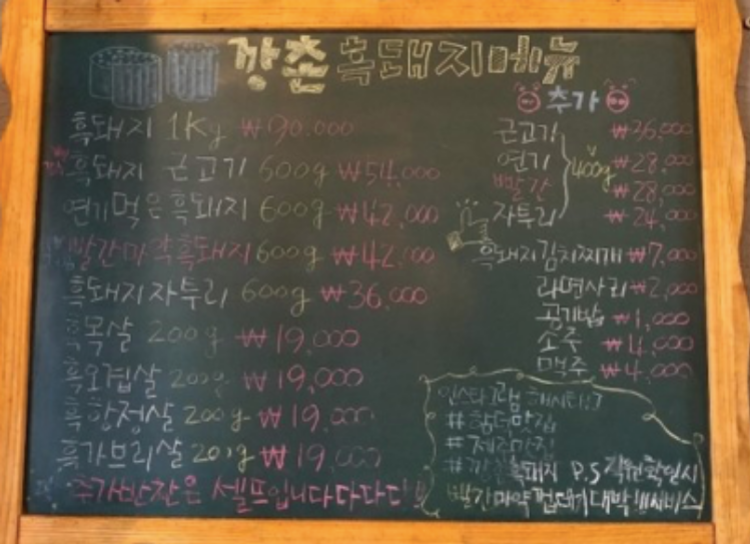 깡촌 흑돼지메뉴
흑돼지 1Kg ₩130.000
흑돼지 근고기 600g ₩54,000
연기먹은흑돼지 600g ₩42,000
빨간마약흑돼지 600g ₩42,000
흑돼지자투리 600g ₩36,000
흑목살 200g ₩19,000
흑오겹살 200g ₩19,000
흑항정살 200g ₩19,000
흑가브리살 200g ₩19,000
추가반찬은 셀프입니다다다다
추가
근고기 ₩36,000
연기 400g ₩28,000
빨간 ₩28,000
자투리 ₩24,000
흑돼지김치찌개 ₩7,000
라면사리 ₩2,000
공기밥 ₩1,000
소주 ₩4,000
맥주 ₩4,000
인스타그램 해시태그
#함덕맛집
#제주맛집
#깡촌흑돼지 P.S 직원확인시
빨간마약껍데기대박!!!서비스